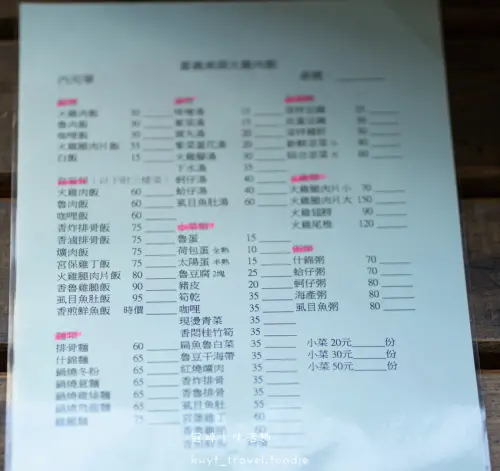 嘉義東園火雞肉飯
內用單
桌號：
火雞肉飯 30
魯肉飯 30
咖哩飯 30
火雞腿肉片飯 55
白飯 15
（以下附三樣菜）
火雞肉飯 60
魯肉飯 60
咖哩飯 60
香炸排骨飯 75
香滷排骨飯 75
爌肉飯 75
宮保雞丁飯 75
火雞腿肉片飯 80
香魯雞腿飯 90
虱目魚肚飯 95
香煎鮮魚飯 時價
排骨麵 60
什錦麵 65
鍋燒冬粉 65
鍋燒意麵 65
鍋燒雞絲麵 65
味噌湯 15
紫菜湯
貢丸湯
紫菜蛋花湯
火雞腳湯 30
下水湯 35
蚵仔湯 40
蛤仔湯 40
虱目魚肚湯 60
魯蛋 15
荷包蛋 全熟 10
太陽蛋 半熟 15
魯豆腐 2塊 25
豬皮 20
筍乾 35
咖哩 35
現燙青菜 35
香悶桂竹筍 35
扁魚魯白菜 35
魯豆干海帶 35
紅燒爌肉 35
香炸排骨 35
香魯排骨 35
虱目魚肚 55
宮保雞丁 60
香魯雞腿 60
火雞腿肉片 小 70
火雞腿肉片 大 150
火雞翅膀 90
火雞尾椎 120
什錦粥 70
蛤仔粥 70
蚵仔粥 80
海產粥 80
虱目魚粥 80
小菜 20元 份
小菜 30元 份
小菜 50元 份
kwyf_travel.foodie